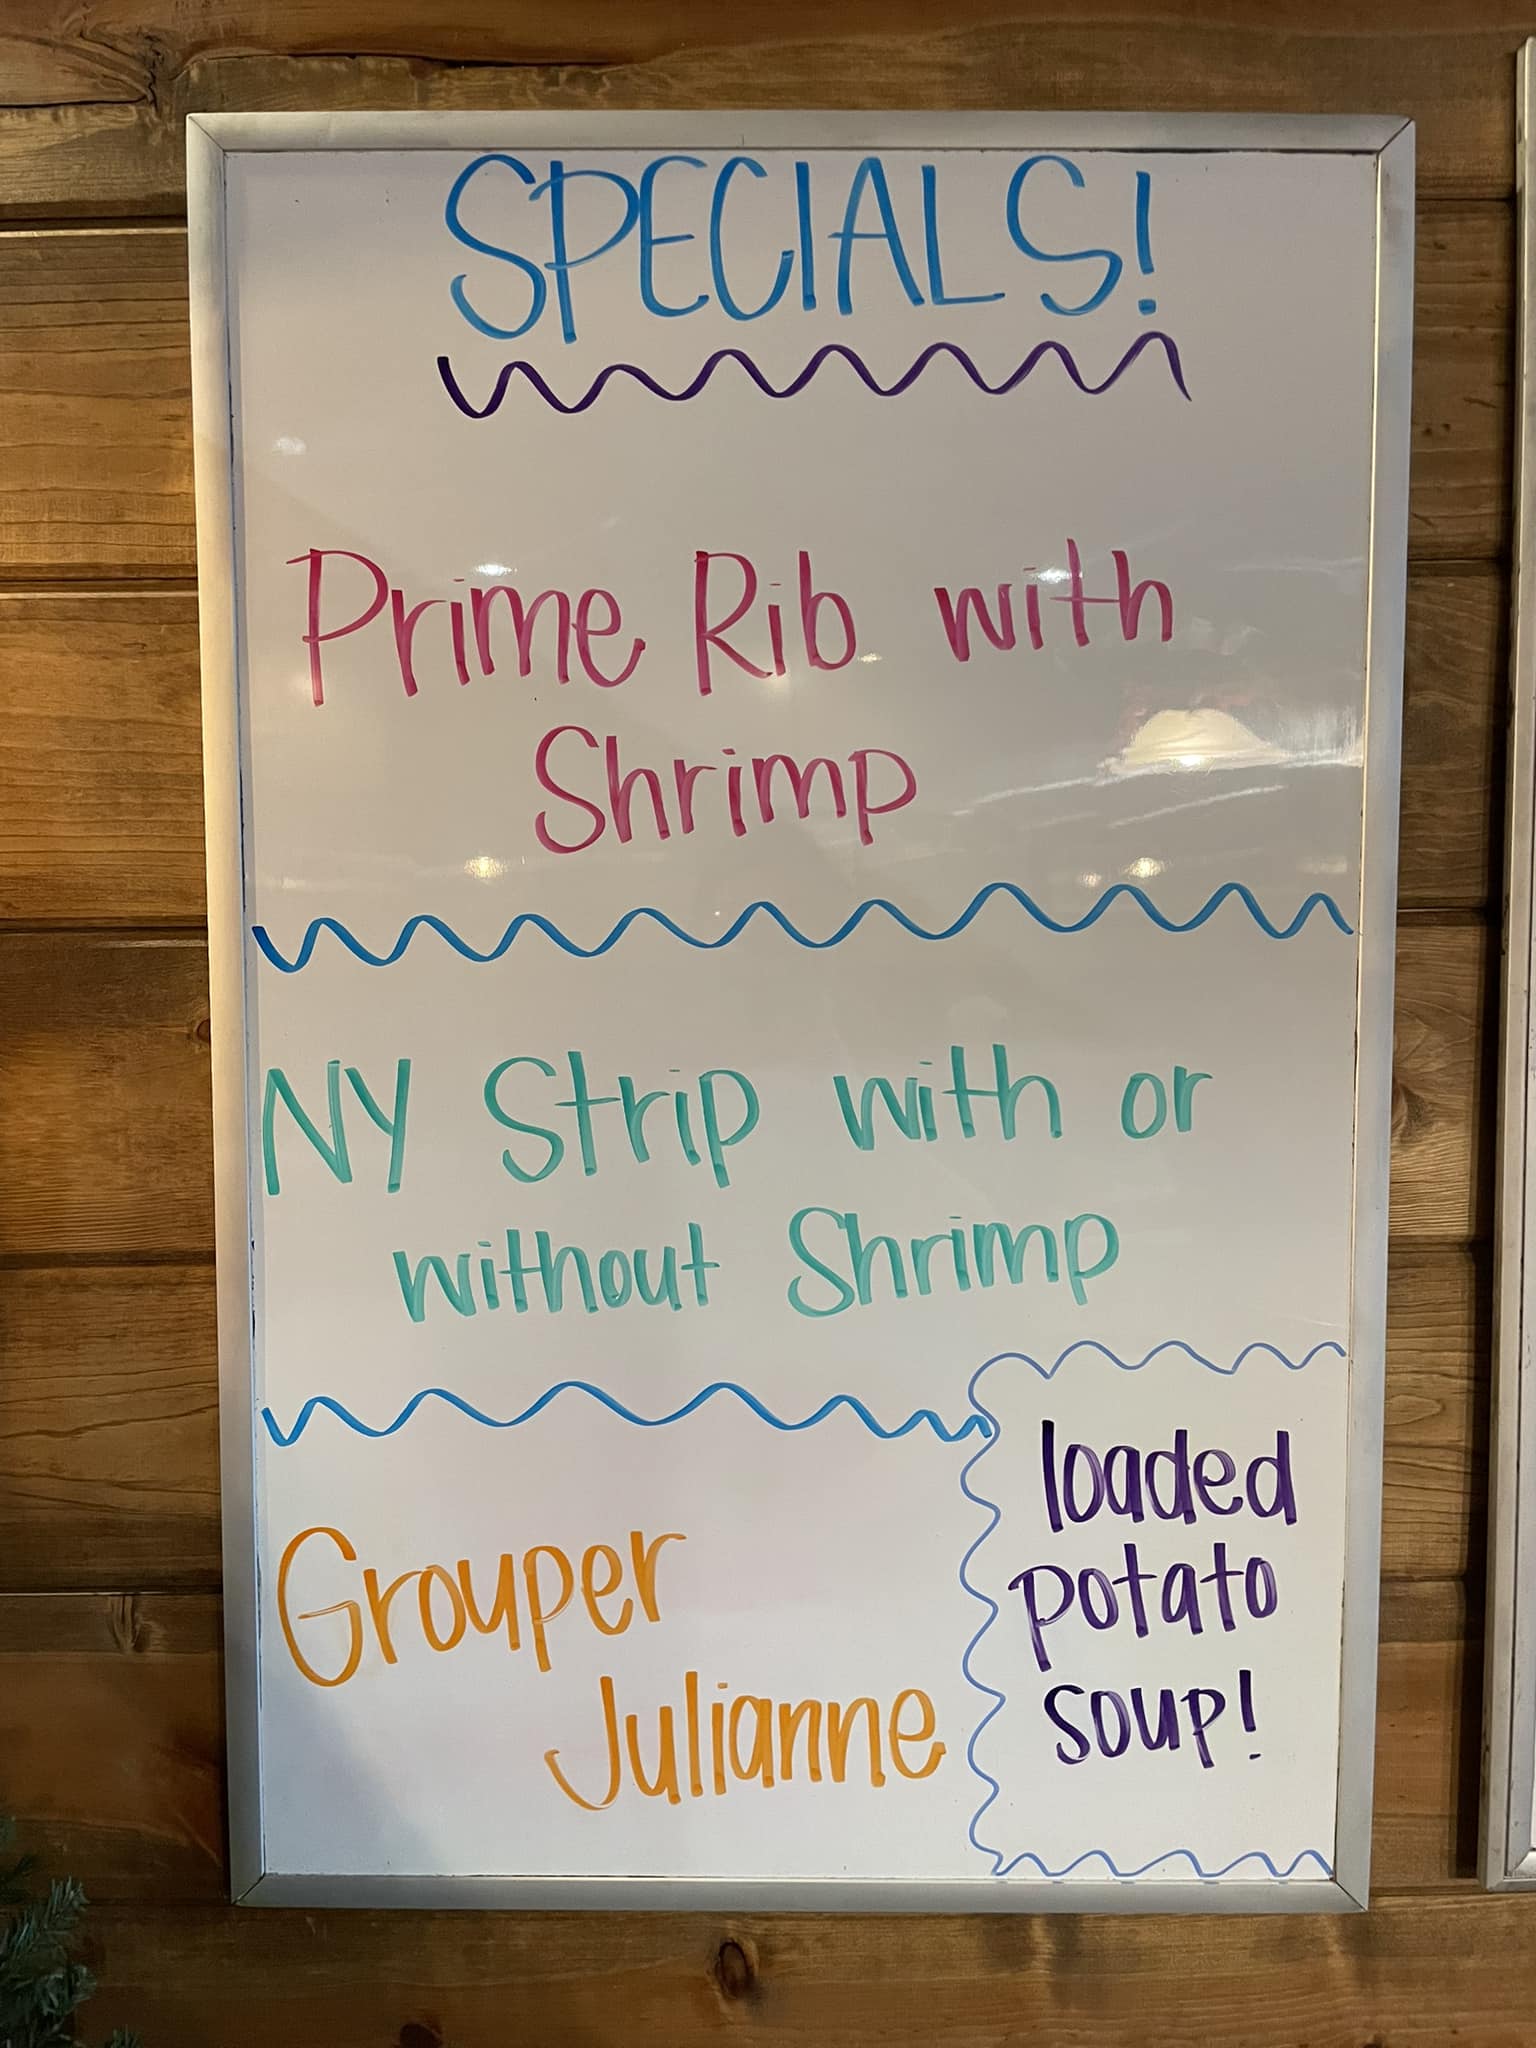 SPECIALS!
Prime Rib with
Shrimp
NY Strip with or
without Shrimp
Grouper
Julianne
loaded
potato
soup!